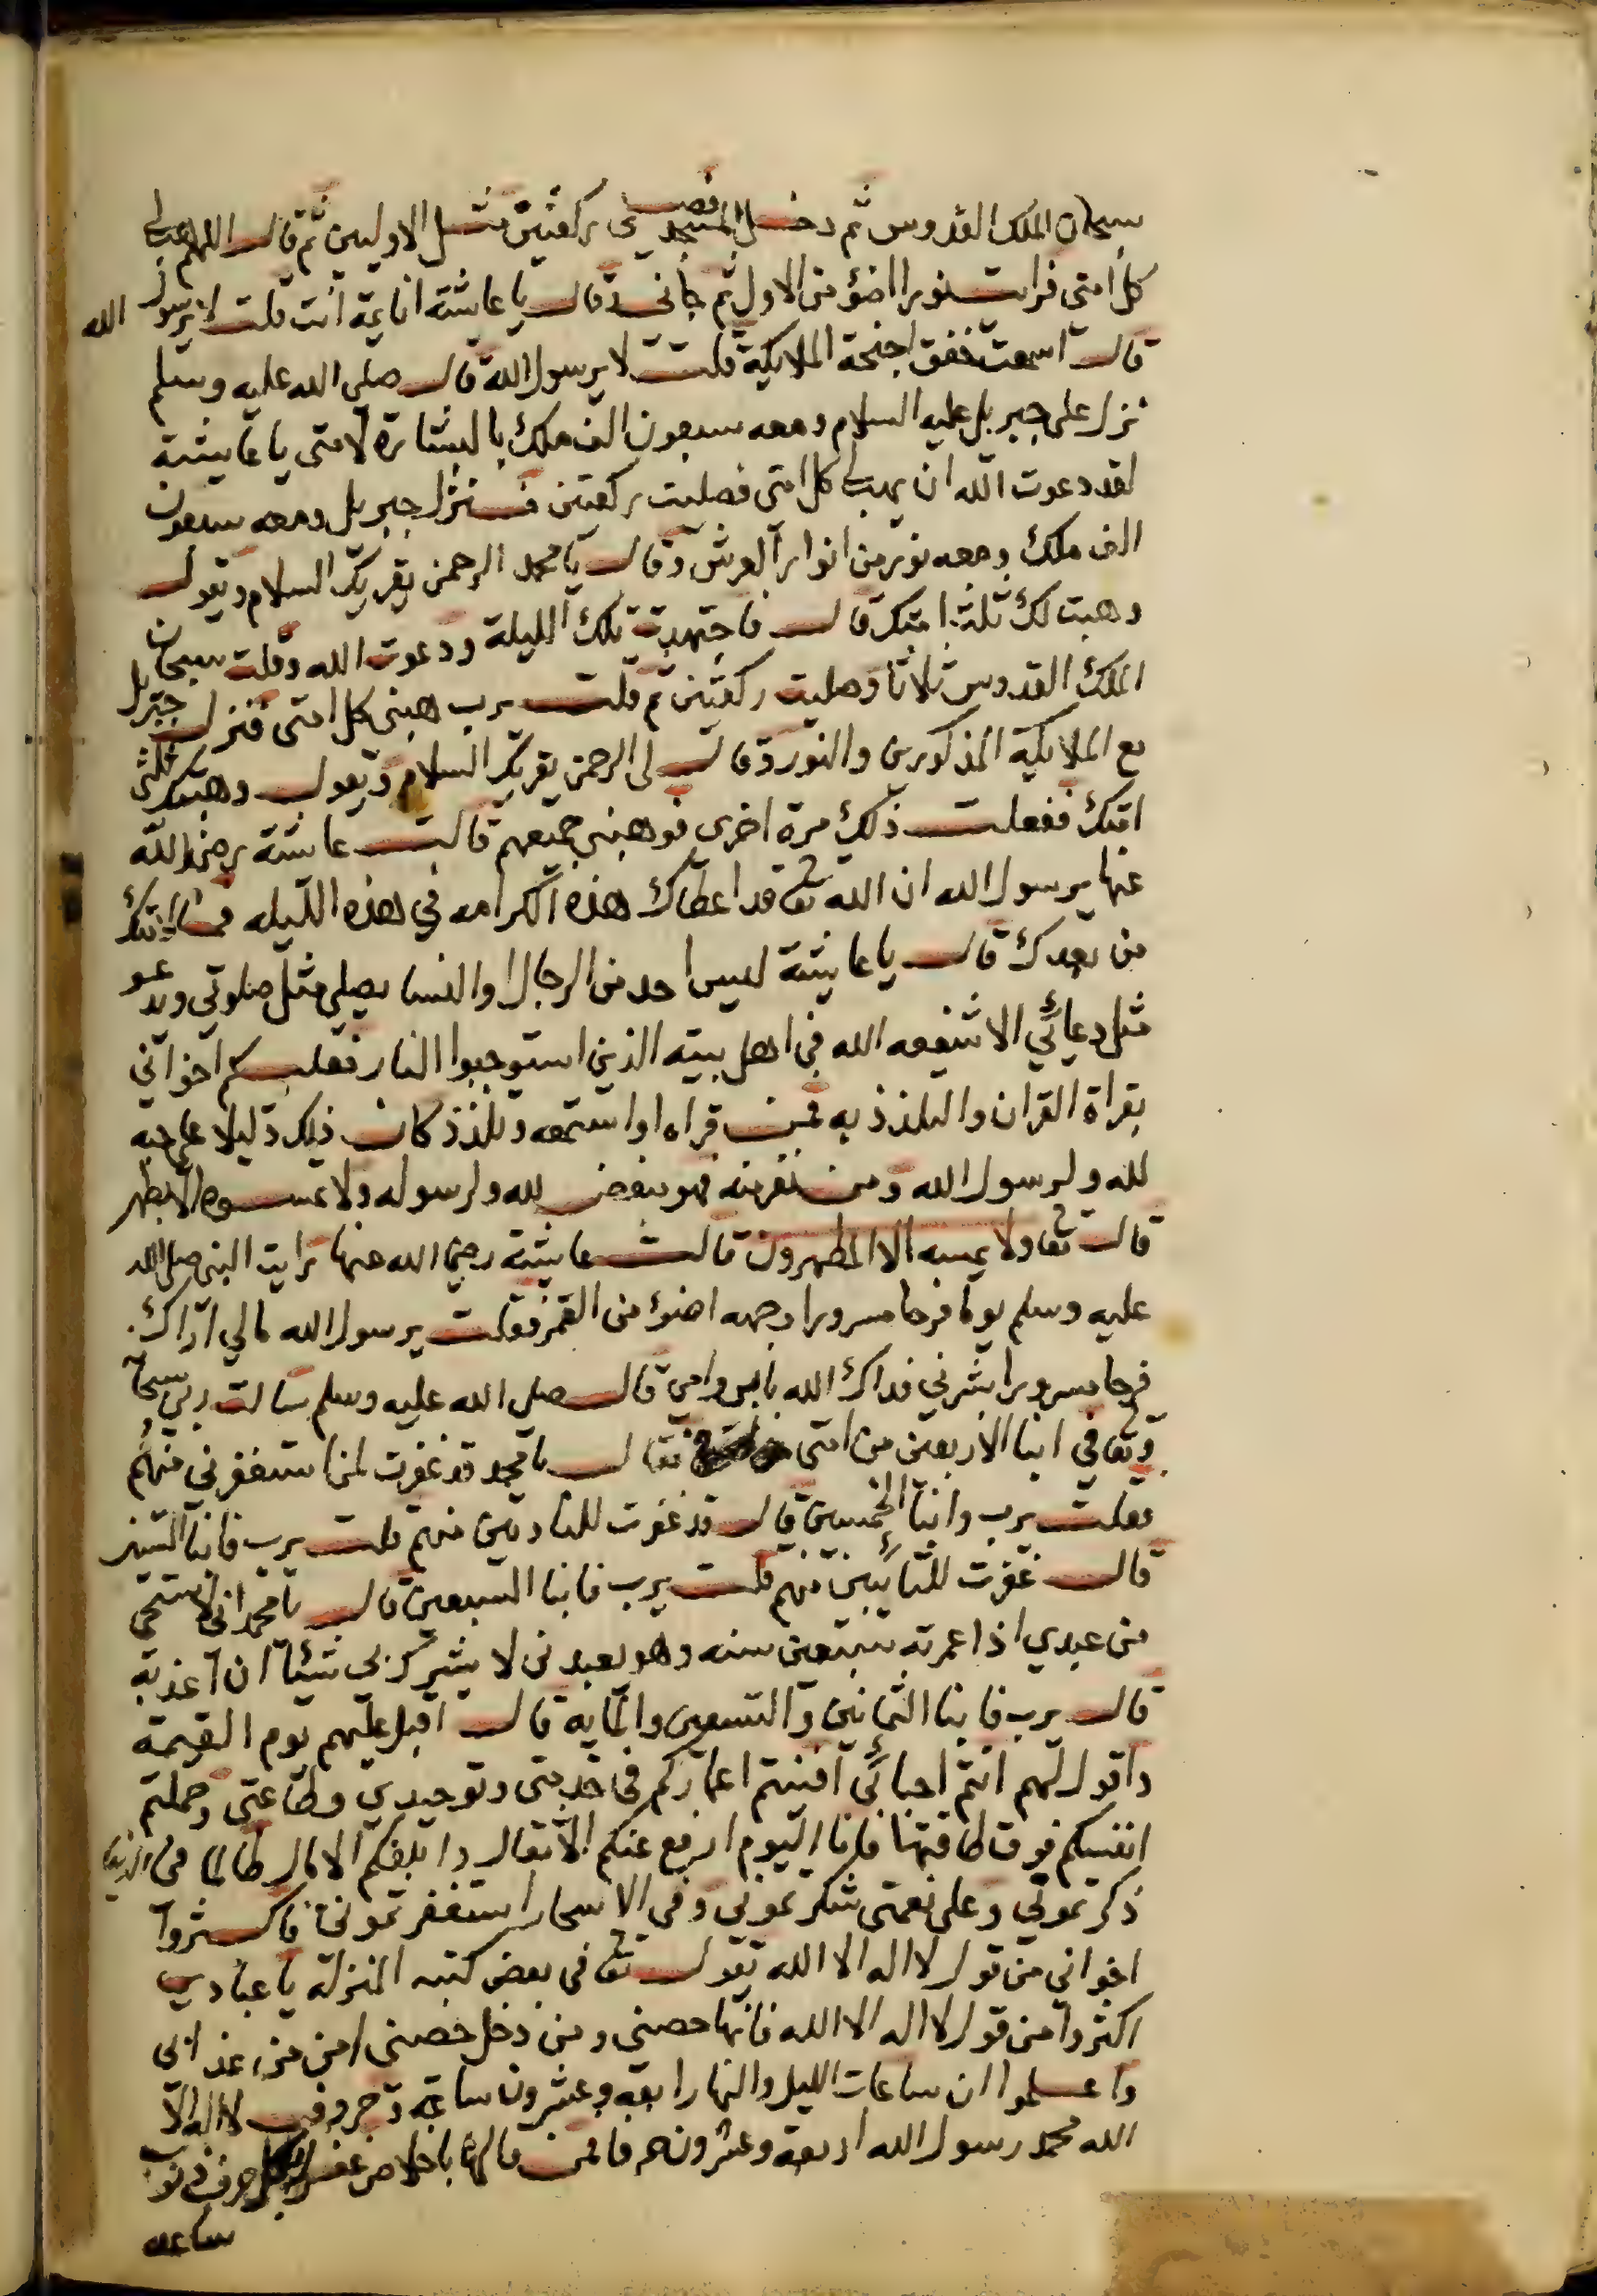 سبحان الملك القدوس ثم دخل المسجد فصلى ركعتين مثل الاوليين ثم قال اللهم هب لي
كل امتي فرايت نورا اضؤ من الاول ثم جانى وقال يا عايشة انايمة انت قلت لا يرسول الله
قال اسمعت خفق اجنحة الملايكة قلت لا يرسول الله قال صلى الله عليه وسلم
نزل على جبريل عليه السلام ومعه سبعون الف ملك بالبشارة لامتى يا عايشة
لقد دعوت الله ان يهب لي كل امتى فصليت ركعتين فنزل جبريل ومعه سبعون
الف ملك ومعه نور من انوار العرش وقال يا محمد الرحمن يقريك السلام ويقول
وهبت لك ثلث امتك قال فاجتهدت تلك الليلة ودعوت الله وقلت سبحان
الملك القدوس ثلاثا وصليت ركعتين ثم قلت يرب هبنى كل امتى فنزل جبريل
مع الملايكة المذكورين والنور وقال لى الرحمن يقريك السلام ويقول وهبتك ثلثى
امتك ففعلت ذلك مرة اخرى فوهبنى جميعهم قالت عايشة رضي الله
عنها يرسول الله ان الله تعا قد اعطاك هذه الكرامه في هذه الليله فما لامتك
من بعدك قال يا عايشة ليس احد من الرجال والنسا يصلي مثل صلوتي ويدعو
مثل دعائي الا شفعه الله في اهل بيته الذين استوجبوا النار فعليكم اخواني
بقراة القران والتلذذ به فمن قراه او استمعه وتلذذ كان ذلك دليلا على حبه
لله ولرسول الله ومن نفر منه فهو مبغض لله ولرسوله ولا يمسوه الا بطهر
قال تعا ولا يمسه الا المطهرون قالت عايشة رضي الله عنها رايت النبي صلى الله
عليه وسلم يوما فرحا مسرورا وجهه اضؤ من القمر فقلت يرسول الله مالي اراك
فرحا مسرورا بشرني فداك الله بابي وامي قال صلى الله عليه وسلم سالت ربي سبحانه
وتعا في ابنا الاربعين من امتى فقال يا محمد قد غفرت لمن استغفرني منهم
فقلت يرب وابنا الخمسين قال قد غفرت للنادمين منهم قلت يرب فابنا الستين
قال غفرت للتائبين منهم قلت يرب فابنا السبعين قال يا محمد اني لاستحي
من عبدي اذا عمرته سبعين سنه وهو يعبدني لا يشرك بى شيئا ان اعذبه
قال يرب فابنا الثمانين والتسعين والمايه قال اقبل عليهم يوم القيمة
واقول لهم انتم احبائي افنيتم اعماركم في خدمتى وتوحيدي وطاعتى وحملتم
انفسكم فوق طاقتها فانا اليوم ارفع عنكم الاثقال وابلغكم الامال طالما في الدنيا
ذكرتموني وعلى نعمتى شكرتموني وفي الاسحار استغفرتموني فاكثروا
اخواني من قول لا اله الا الله يقول تعا في بعض كتبه المنزلة يا عبادي
اكثروا من قول لا اله الا الله فانها حصنى ومن دخل حصنى امن من عذابي
واعلموا ان ساعات الليل والنهار اربعة وعشرون ساعة وحروف لا اله الا
الله محمد رسول الله اربعة وعشرون حرفا فمن قالها باخلاص غفر الله بكل حرف ذنوب
ساعه